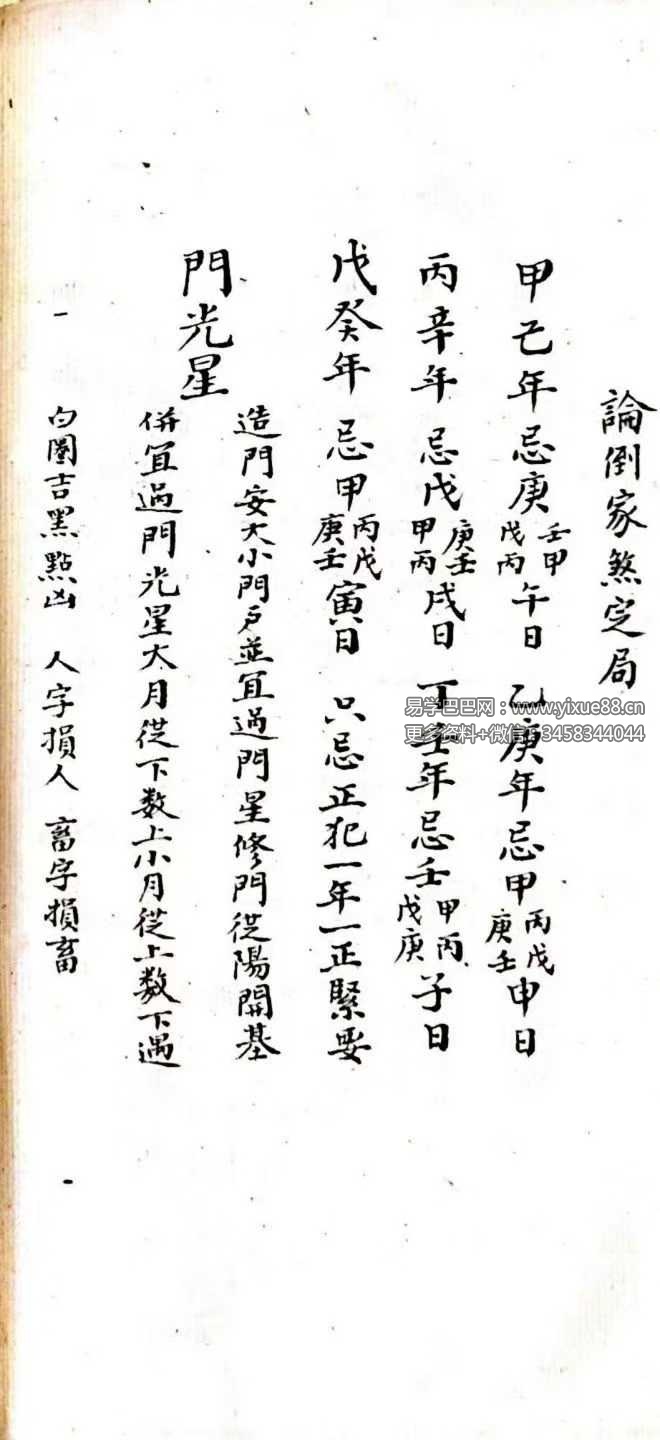 論倒家煞定局
甲己年忌庚壬甲戊丙午日 乙庚年忌甲丙戊庚壬申日
丙辛年忌戊庚壬甲丙戌日 丁壬年忌壬甲丙戊庚子日
戊癸年忌甲丙戊庚壬寅日 只忌正犯一年一正緊要
門光星
造門安大小門戶並宜過門星修門從陽開基
併宜過門光星大月從下数上小月從上数下遇
白圈吉黑點凶 人字損人 畜字損畜
易学巴巴网：www.yixue88.cn
更多资料+微信：3458344044